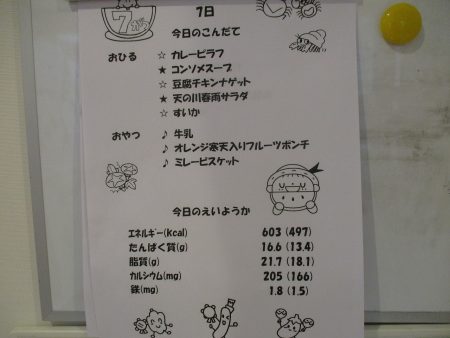 7がつ
7日
今日のこんだて
おひる
☆ カレーピラフ
★ コンソメスープ
☆ 豆腐チキンナゲット
★ 天の川春雨サラダ
☆ すいか
おやつ
♪ 牛乳
♪ オレンジ寒天入りフルーツポンチ
♪ ミレービスケット
今日のえいようか
エネルギー(kcal) 603 (497)
たんぱく質(g) 16.6 (13.4)
脂質(g) 21.7 (18.1)
カルシウム(mg) 205 (166)
鉄(mg) 1.8 (1.5)